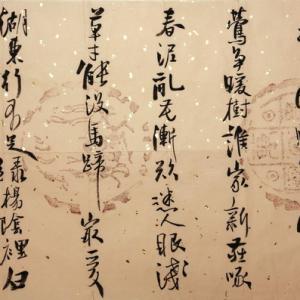 鶯爭暖樹誰家新燕啄
春泥亂花漸欲迷人眼淺
草才能没馬蹄最愛
湖東行不足綠楊陰裡白